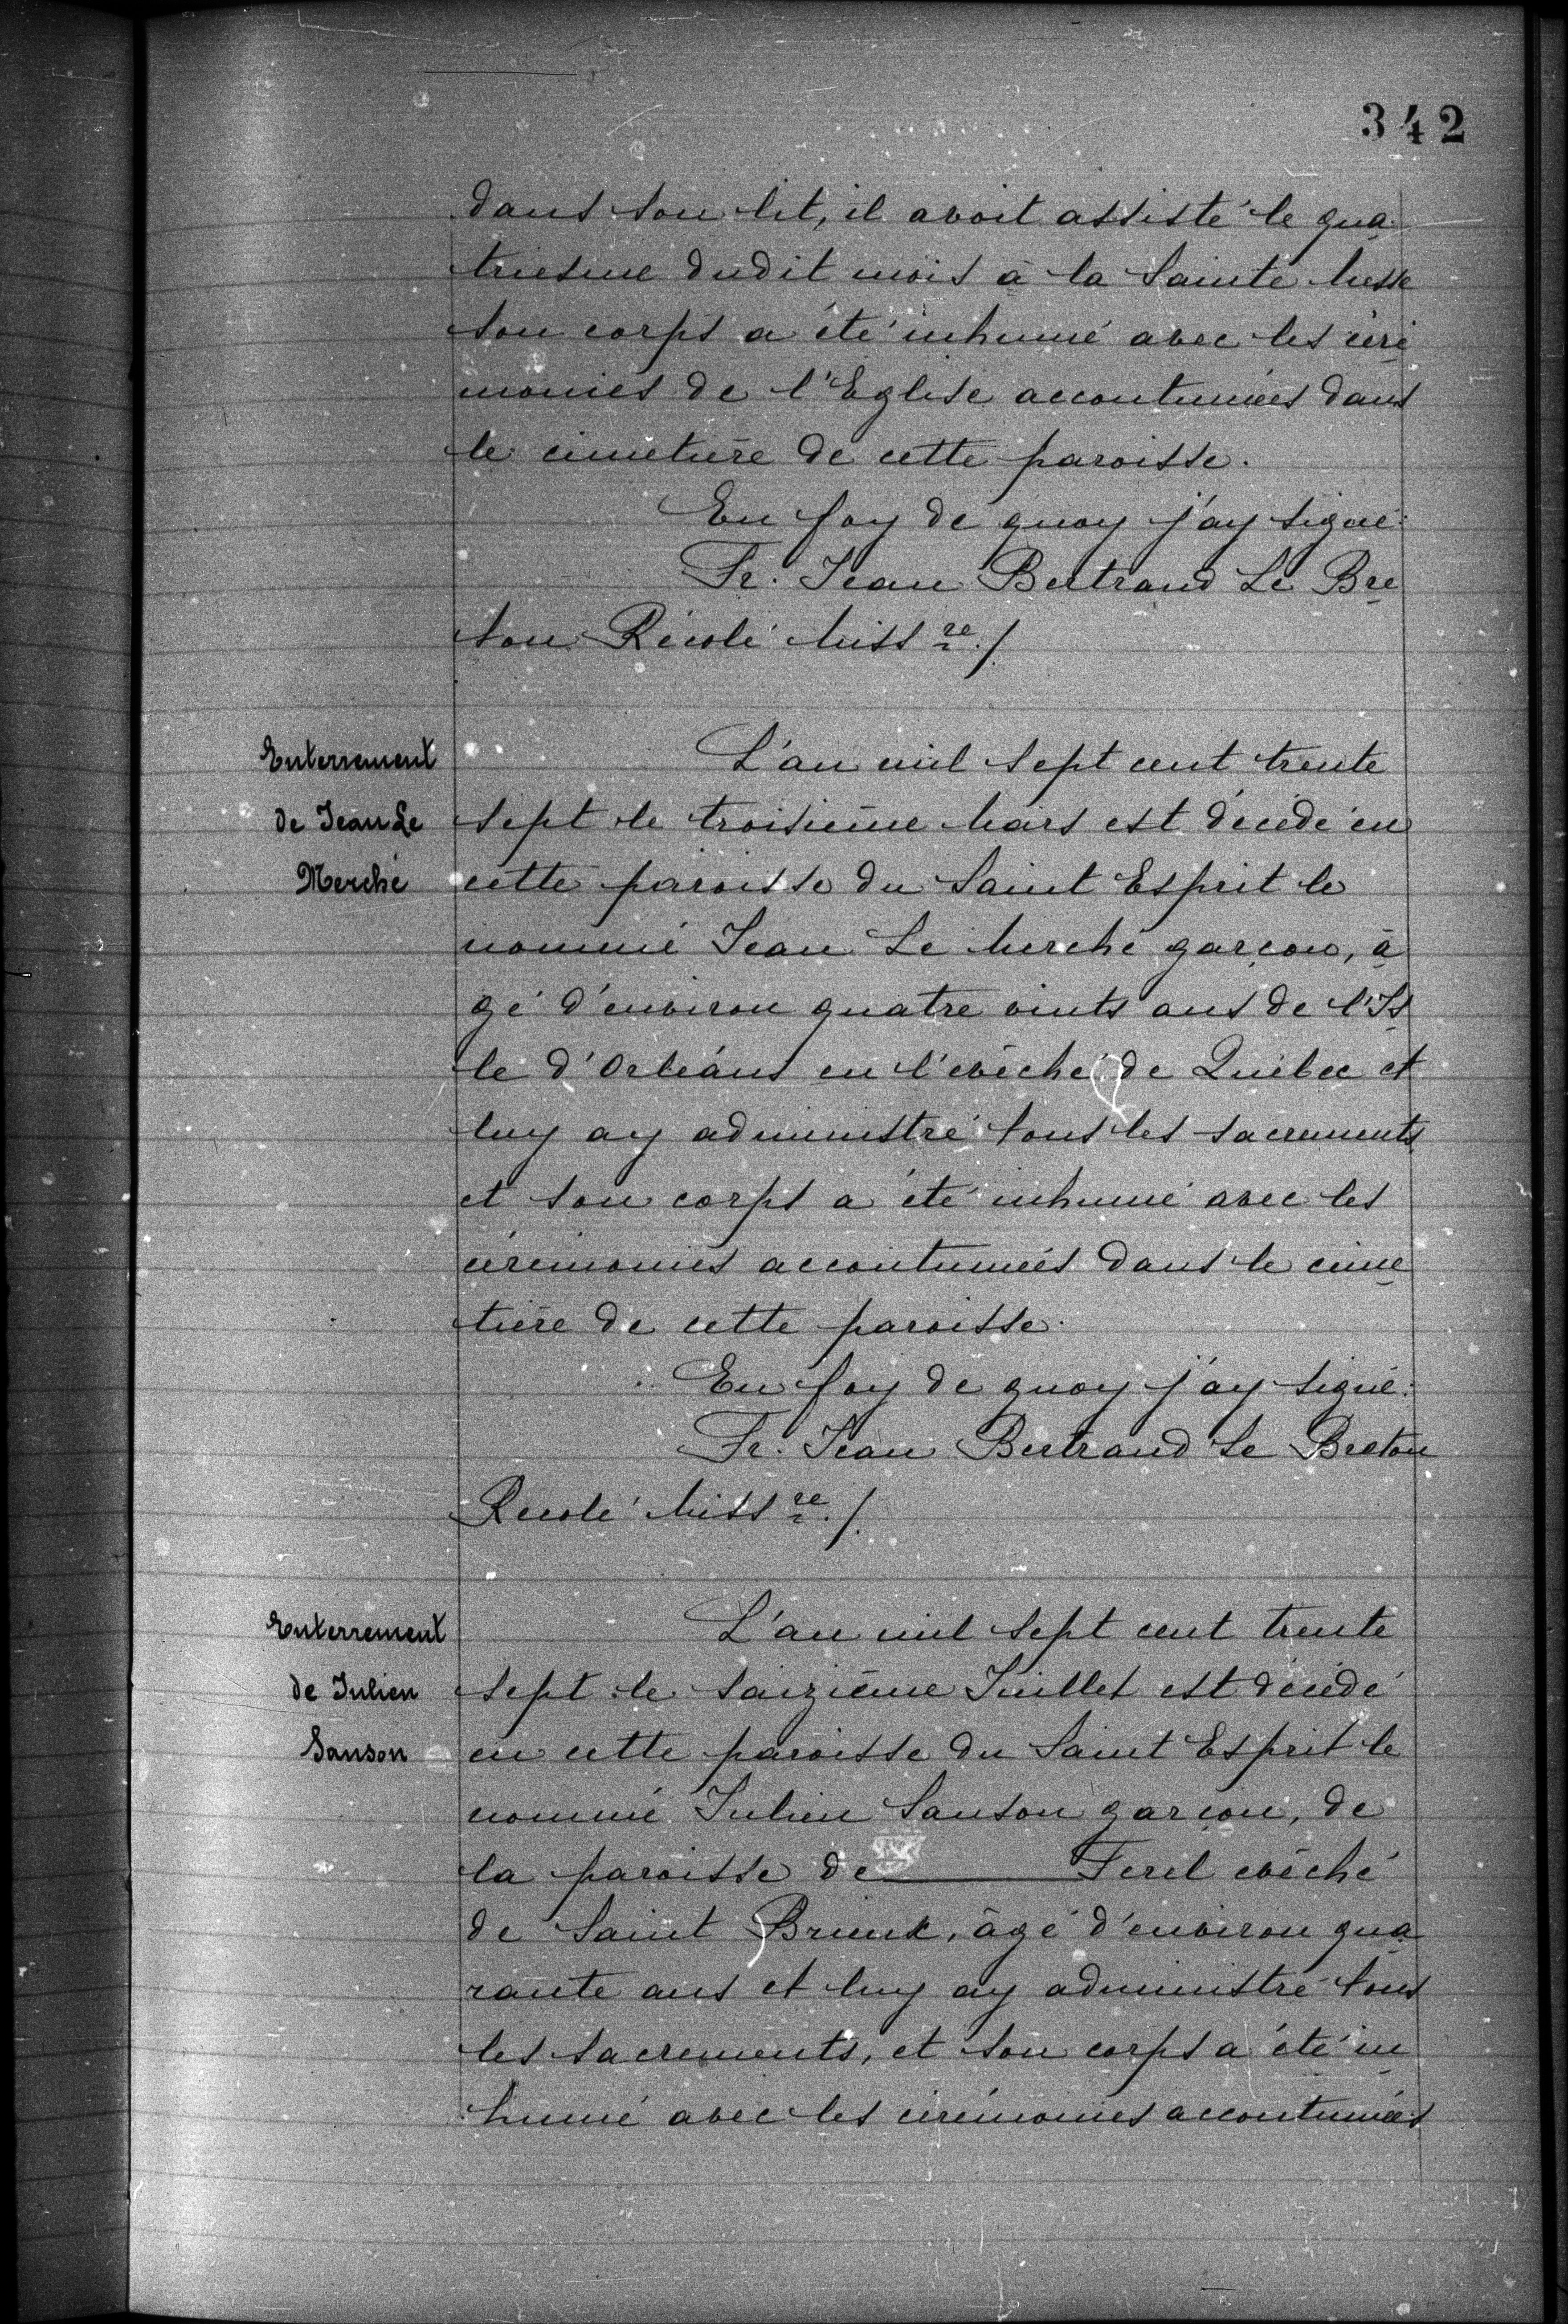 342
dans son lit, il avoit assisté le qua
triesme dudit mois à la Sainte Messe
son corps a été inhumé avec les céré
monies de l'Eglise accoutumées dans
le cimetière de cette paroisse.
En foy de quoy j'ay signé:
Fr. Jean Bertrand Le Bre
ton Récolé Miss re./.
Enterrement
de Jean Le
Merché
L'an mil sept cent trente
sept le troisième Mars est décédé en
cette paroisse du Saint Esprit le
nommé Jean Le Merché garçon, â
gé d'environ quatre vints ans de l'Is
le d'Orléans en l'evêché de Québec et
luy ay administré tous les sacrements
et son corps a été inhumé avec les
cérémonies accoutumées dans le cime
tière de cette paroisse.
En foy de quoy j'ay signé:
Fr. Jean Bertrand Le Breton
Recolé Miss re./.
Enterrement
de Julien
Sanson
L'an mil sept cent trente
sept le saizième Juillet est décédé
en cette paroisse du Saint Esprit le
nommé Julien Sanson garçon, de
la paroisse de ——— Ferel evêché
de Saint Brieuk, âgé d'environ qua
rante ans et luy ay administré tous
les sacrements, et son corps a été in
humé avec les cérémonies accoutumées